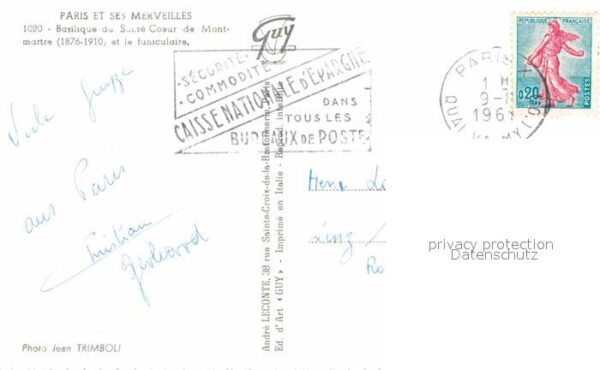 PARIS ET SES MERVEILLES
1020 - Basilique du Sacré Coeur de Mont-
martre (1876-1910) et le funiculaire.
Guy
SÉCURITÉ
COMMODITÉ
CAISSE NATIONALE D'ÉPARGNE
DANS
TOUS LES
BUREAUX DE POSTE
PARIS
1 H
9-
196
QUAI
REPUBLIQUE FRANÇAISE
0,20
POSTES
Viele
aus Paris
Christian
André LECONTE, 38 rue Sainte-Croix-de-la-Bretonnerie
Ed. d'Art «GUY» - Imprimé en Italie - Reprod. interdite
privacy protection
Datenschutz
Photo Jean TRIMBOLI